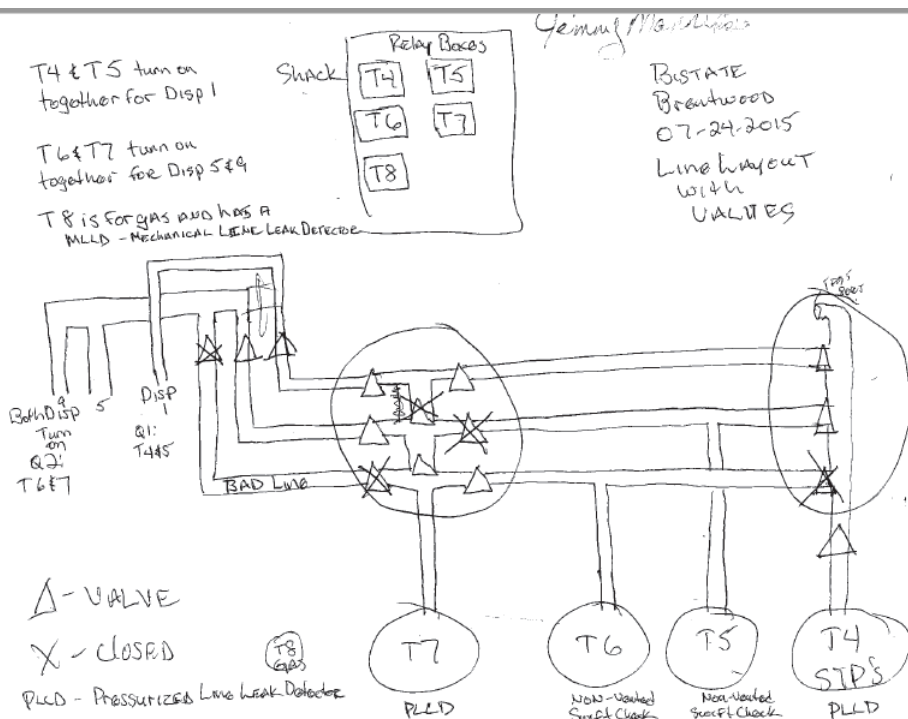 T4 & T5 turn on
together for Disp 1
T6 & T7 turn on
together for Disp 5 & 9
T8 is for gas and has a
MLLD - Mechanical Line Leak Detector
Relay Boxes
Shack
T4
T5
T6
T7
T8
BiState
Brentwood
07-24-2015
Line Layout
with
VALVES
Both Disp
9
5
Disp
1
Turn
on
Q2:
T6 & 7
Q1:
T4&5
BAD Line
Δ - VALVE
X - Closed
T8
GAS
PLLD - Pressurized Line Leak Detector
T7
PLLD
T6
Non-Vented
Swift Check
T5
Non-Vented
Swift Check
T4
STP's
PLLD